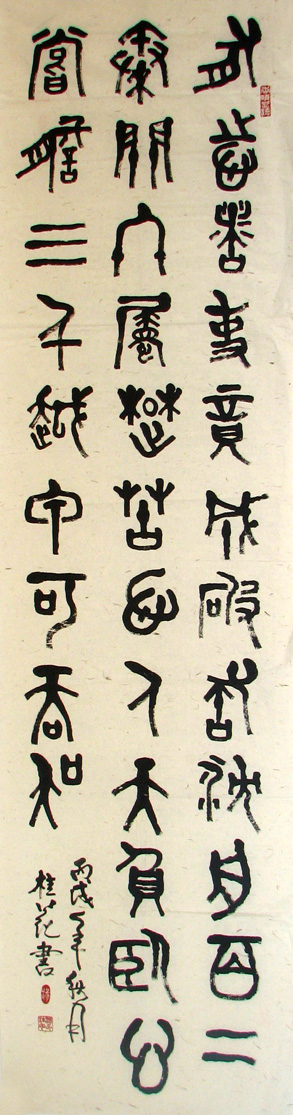 有志者事竟成破釜沉舟百二
秦關終屬楚苦心人天負臥
嘗膽三千越甲可吞吳
丙戌年秋月
桂花書